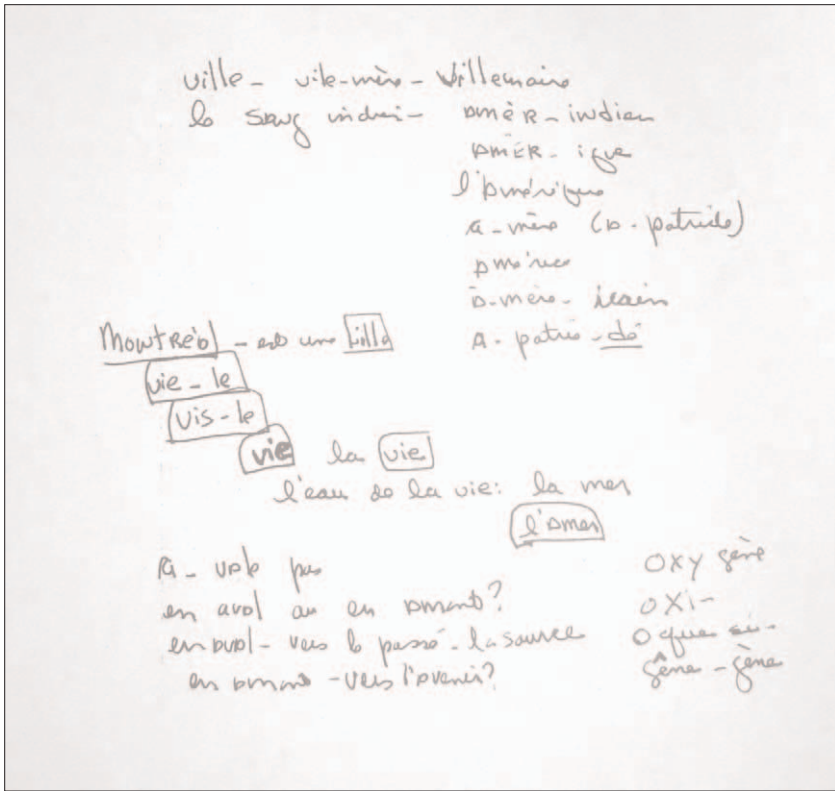 ville - vile-mère - Villemaire
le sang indien - AMÈR - indien
AMÈR - ique
l'Amérique
a - mère (A - patride)
América
A - mère - icain
MONTRÉAL - est une ville
A - patri - dé
vie - le
vis - le
vie la vie
l'eau de la vie : la mer
l'Amer
A - vale pas
en aval ou en amont ?
en aval - vers le passé - la source
en amont - vers l'avenir ?
OXY gène
OXI -
O que si -
gêne - gène